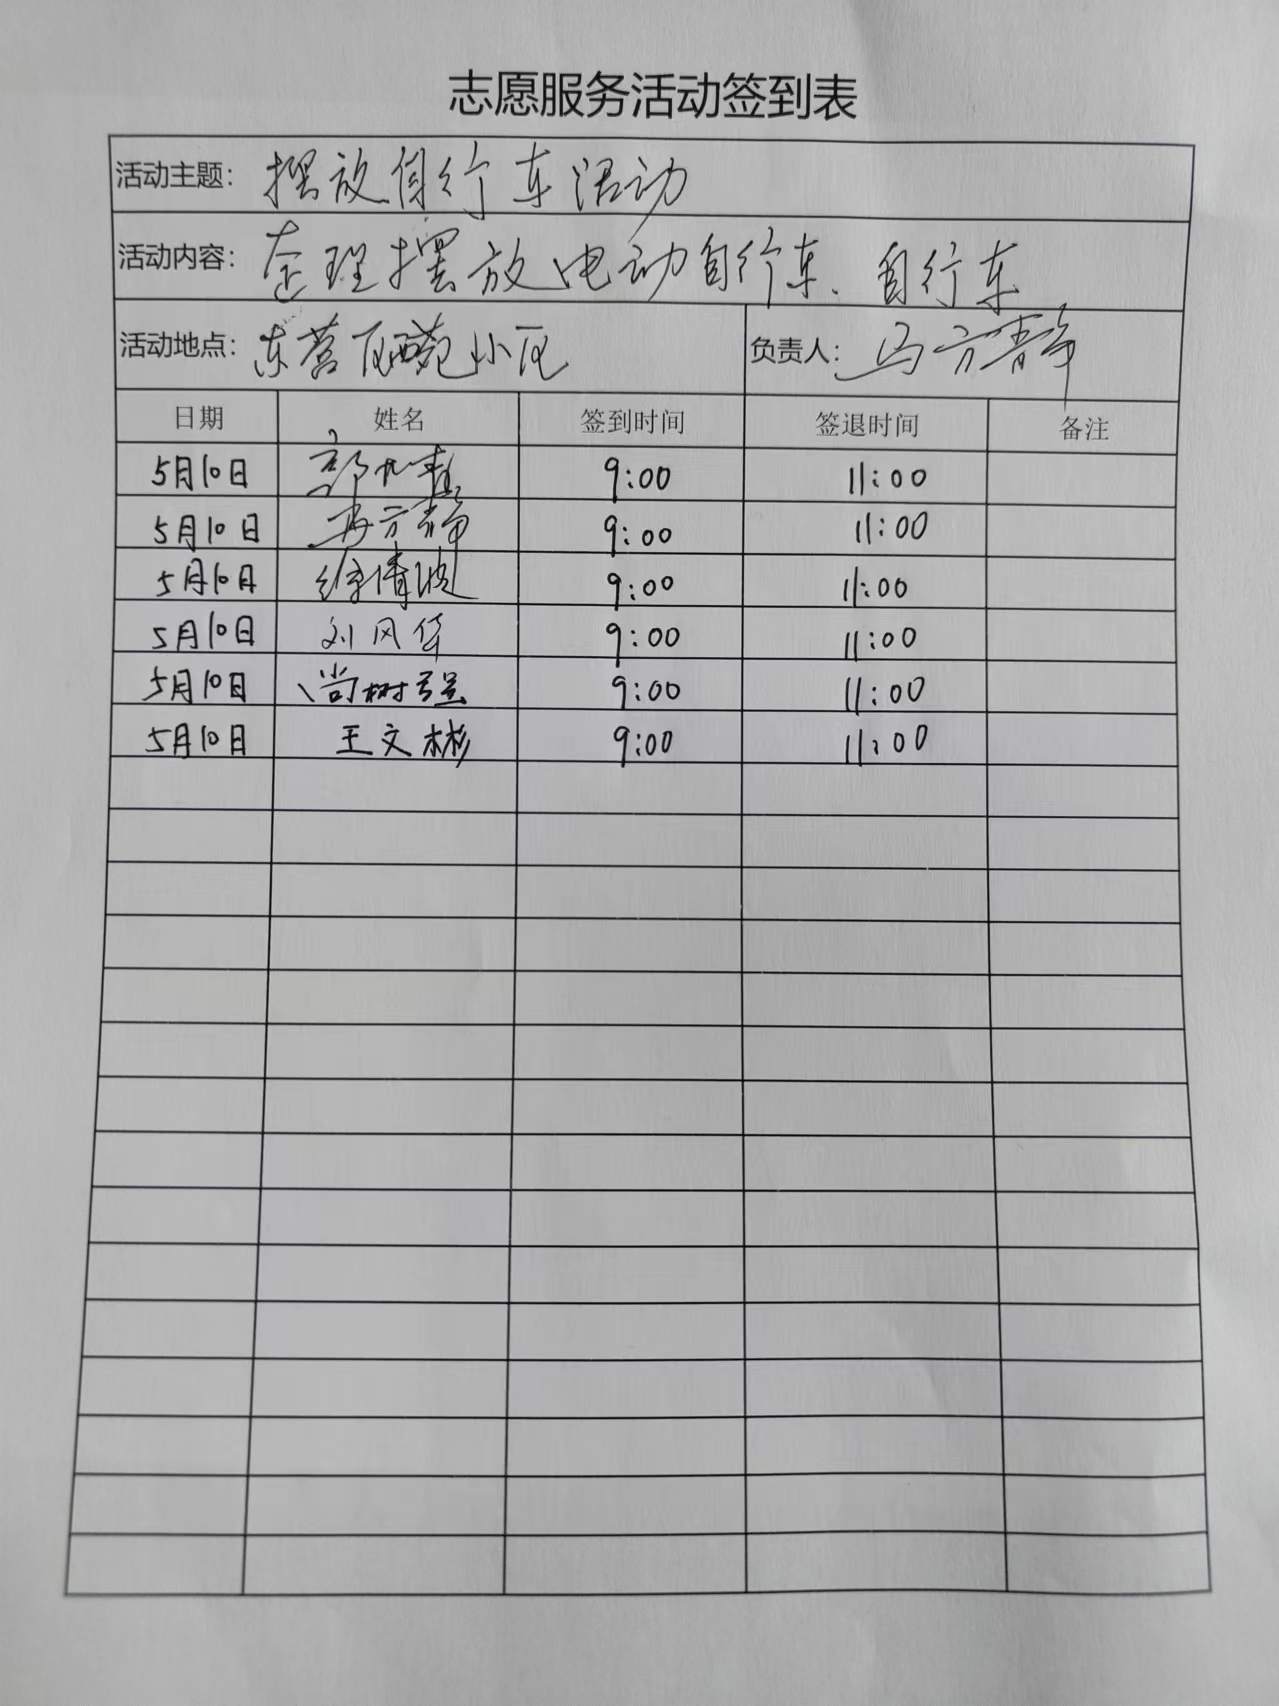 志愿服务活动签到表
活动主题：摆放自行车活动
活动内容：整理摆放电动自行车、自行车
活动地点：东营区西苑小区 负责人：马方静
日期 姓名 签到时间 签退时间 备注
5月10日 9:00 11:00
5月10日 马方静 9:00 11:00
5月10日 徐清波 9:00 11:00
5月10日 刘风华 9:00 11:00
5月10日 尚树强 9:00 11:00
5月10日 王文彬 9:00 11:00